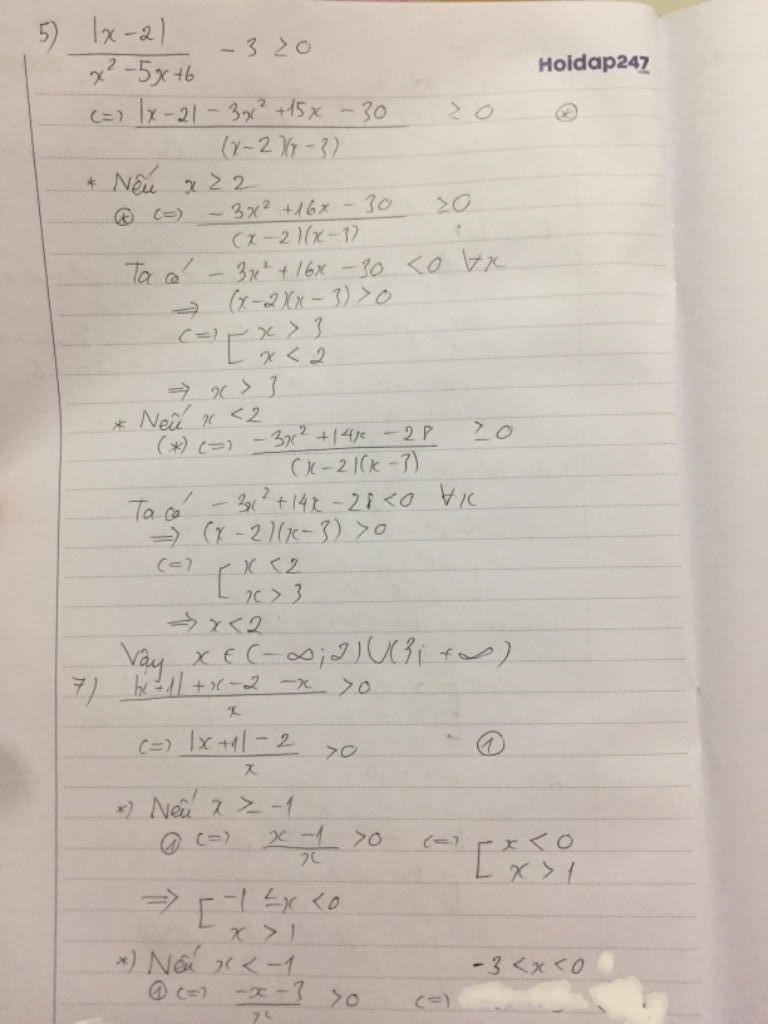 5) |x-2| / (x² - 5x + 6) - 3 ≥ 0
Hoidap247
<=> (|x-2| - 3x² + 15x - 30) / ((x-2)(x-3)) ≥ 0 (*)
* Nếu x ≥ 2
(*) <=> (-3x² + 16x - 30) / ((x-2)(x-3)) ≥ 0
Ta có -3x² + 16x - 30 < 0 ∀x
=> (x-2)(x-3) > 0
<=> [ x > 3
x < 2
=> x > 3
* Nếu x < 2
(*) <=> (-3x² + 14x - 28) / ((x-2)(x-3)) ≥ 0
Ta có -3x² + 14x - 28 < 0 ∀x
=> (x-2)(x-3) > 0
<=> [ x < 2
x > 3
=> x < 2
Vậy x ∈ (-∞; 2) ∪ (3; +∞)
7) (|x+1| + x - 2 - x) / x > 0
<=> (|x+1| - 2) / x > 0 ①
*) Nếu x ≥ -1
① <=> (x-1) / x > 0 <=> [ x < 0
x > 1
=> [ -1 ≤ x < 0
x > 1
*) Nếu x < -1 -3 < x < 0
① <=> (-x-3) / x > 0 <=>